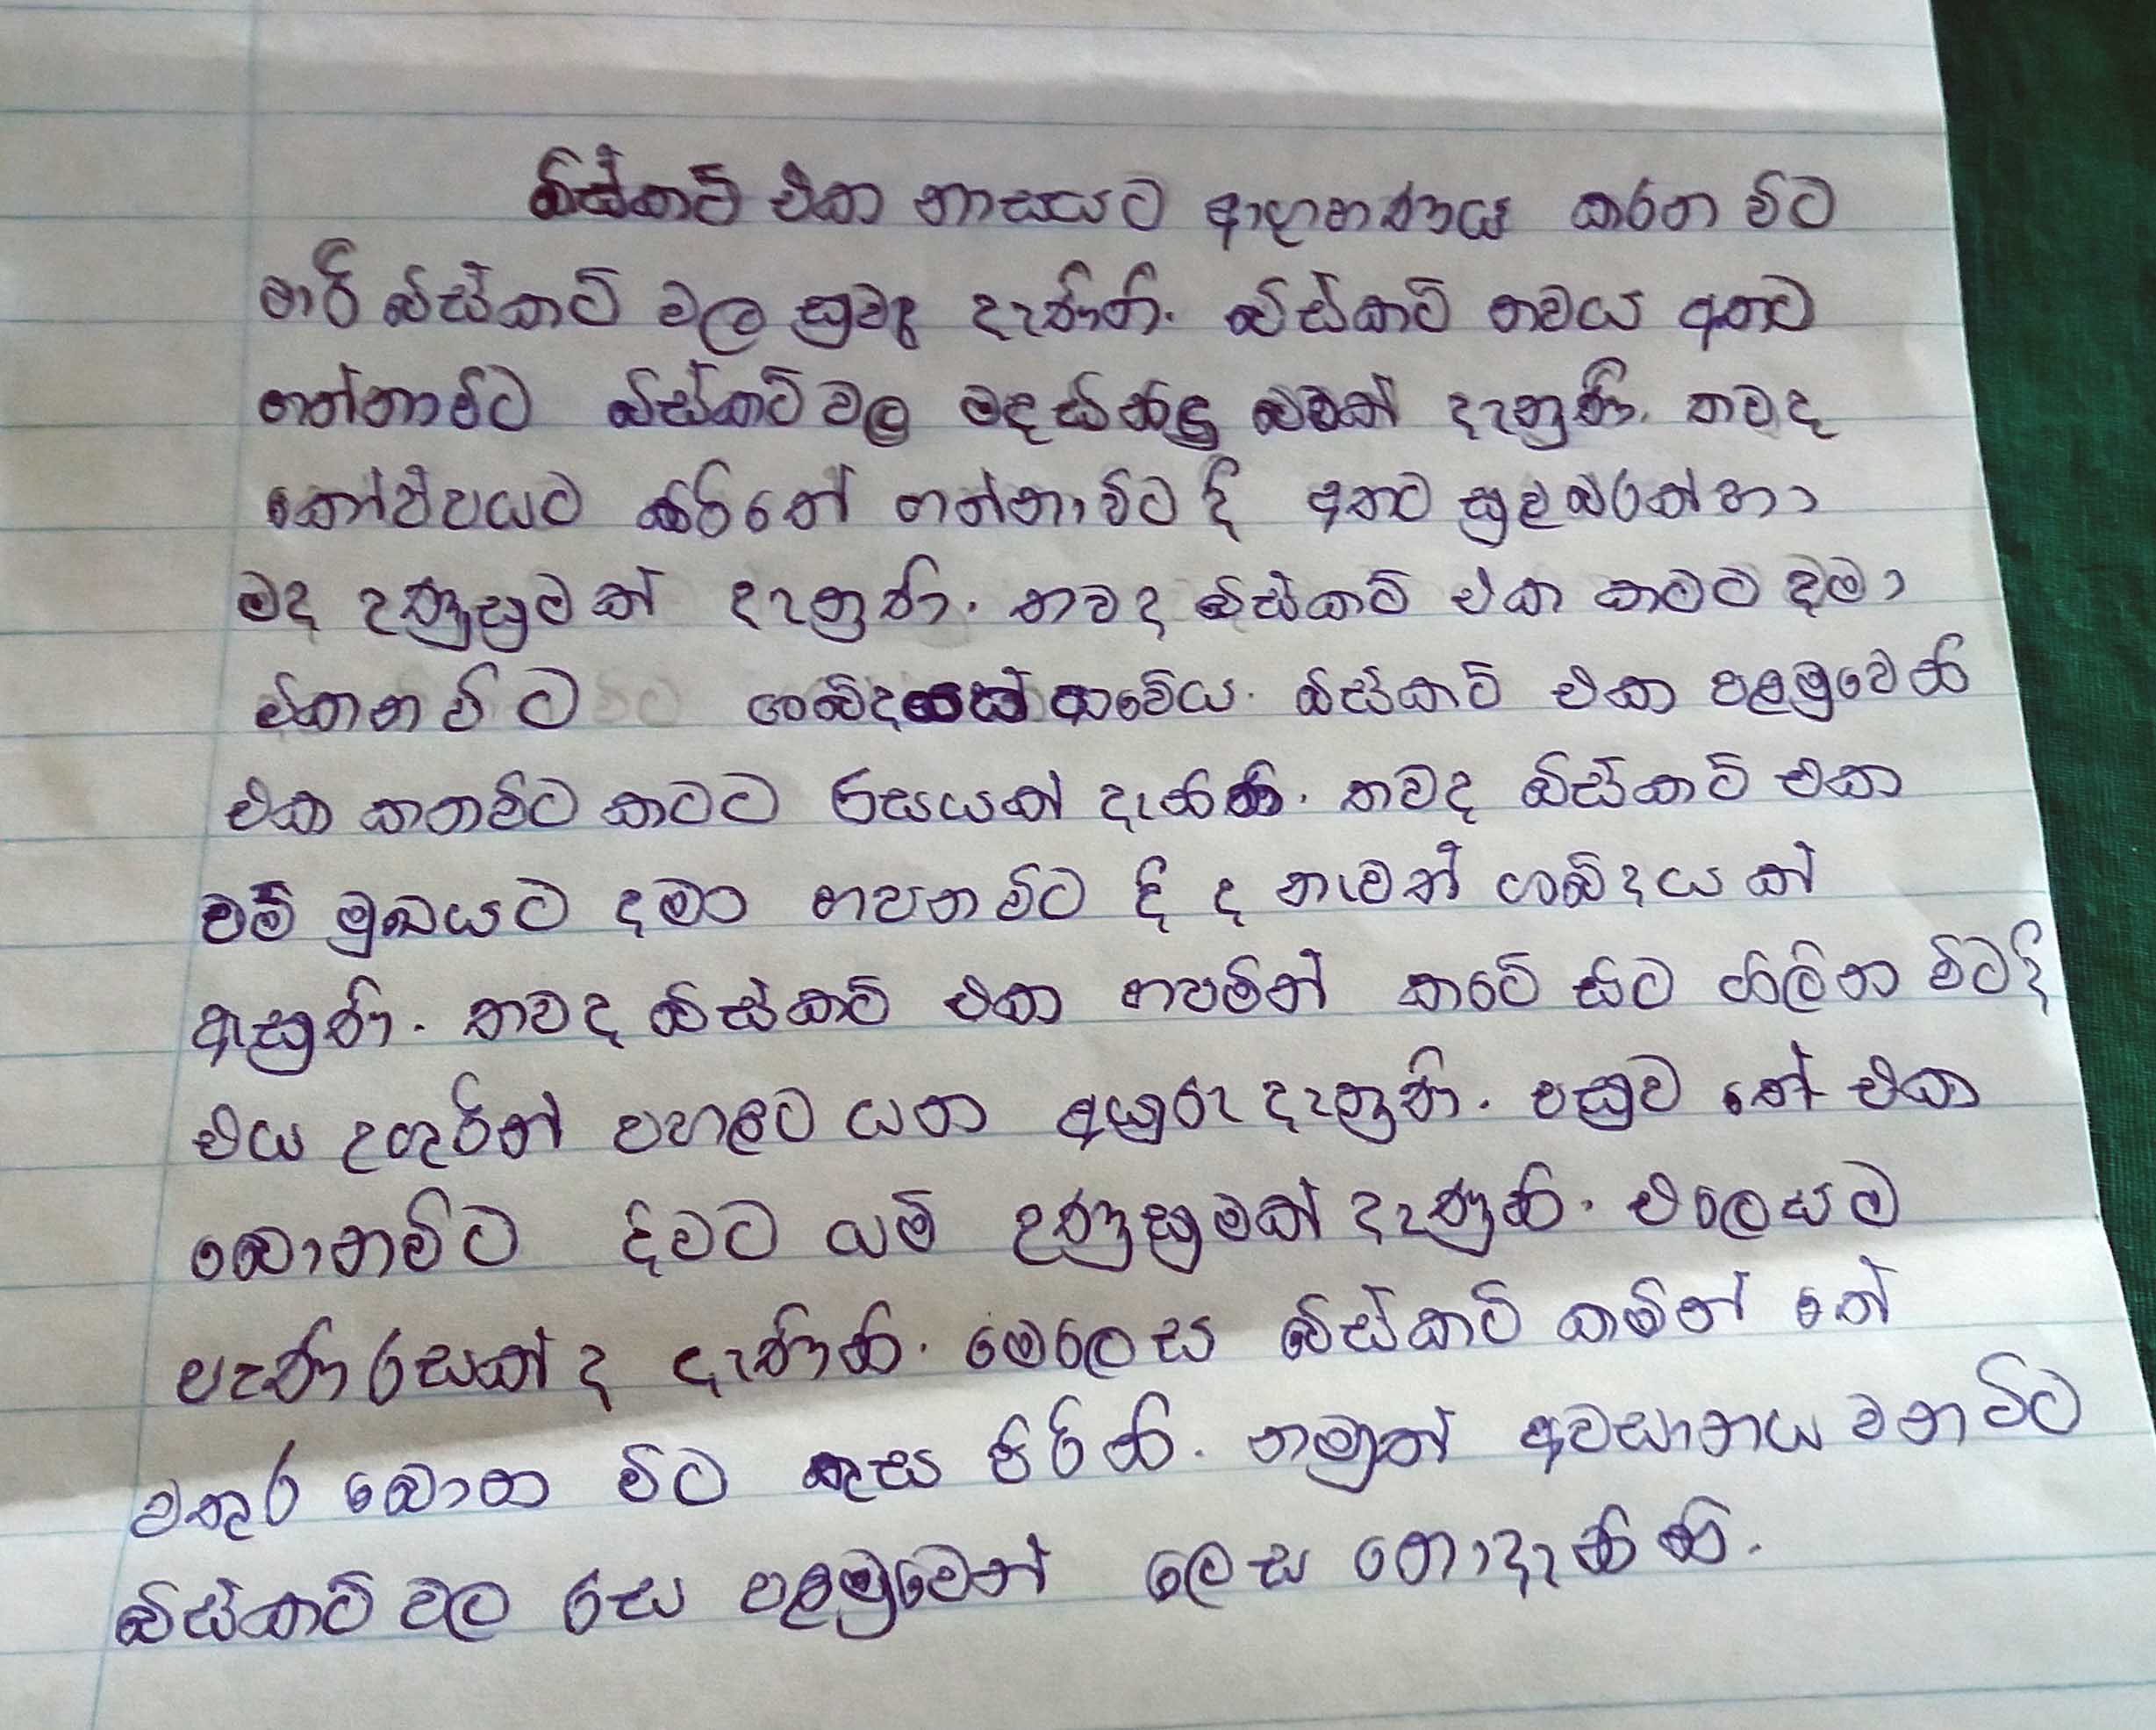 බිස්කට් එක නාසයට ආග්‍රහණය කරන විට
මාරි බිස්කට් වල සුවඳ දැණිනි. බිස්කට් තවය අතට
ගන්නාවිට බිස්කට් වල මදසිනිඳු බවක් දැනුණි. තවද
කෝප්පයට කිරිතේ ගන්නාවිට දී අතට සුළු බරක් හා
මද උණුසුමක් දැනුණි. තවද බිස්කට් එක කටට දමා
විකනවිට ශබ්දයක් ආවේය. බිස්කට් එක පළමුවෙනි
එක කනවිට කටට රසයක් දැනිණි. තවද බිස්කට් එක
එම් මුඛයට දමා හපනවිට දී ද නැවත් ශබ්දයක්
ඇසුණි. තවද බිස්කට් එක හපමින් කටේ සිට ගිලින විටදී
එය උගුරින් පහළට යන අයුරු දැනුණි. පසුව තේ එක
බොනවිට දිවට යම් උණුසුමක් දැණුනි. එලෙසම
පැණි රසක් ද දැණිනි. මෙලෙස බිස්කට් කමින් තේ
වතුර බොන විට කුස පිරිනි. නමුත් අවසානය වනවිට
බිස්කට් වල රස පළමුවෙන් ලෙස නොදැනිණි.